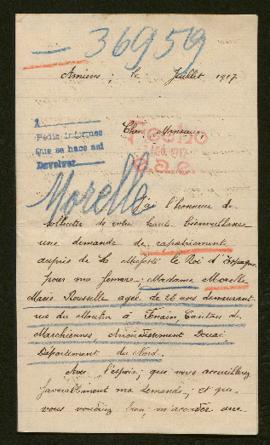 36959
Amiens, le Juillet 1917
A
Pedir informes
Que se hace así
Devolver
Cher Monsieur
Morelle
J'ai l'honneur de
de votre haute bienveillance
une demande de rapatriement
auprès de Sa Majesté le Roi d'Espagne
pour ma femme, Madame Morelle
Marie Rousselle agée de 26 ans demeurant
rue du Moulin à Erain, Canton de
Marchiennes, Arrondissement Douai
Département du Nord.
Avec l'espoir, que vous accueillerez
favorablement ma demande, et que
vous voudrez bien m'accorder une